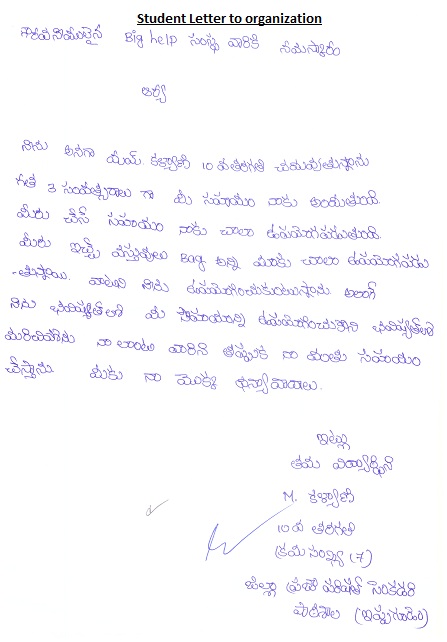 Student Letter to organization
గౌరవనీయులైన Big help సంస్థ వారికి నమస్కారం
ఆర్యా
నేను అనగా యమ్. కళ్యాణి 10 వతరగతి చదువుతున్నాను
గత 3 సంవత్సరాలు గా మీ సహాయం నాకు అందుతుంది.
మీరు చేసే సహాయం నాకు చాలా ఉపయోగపడుతుంది.
మీరు ఇచ్చే వస్తువులు Bag అన్ని మాకు చాలా ఉపయోగపడు
-తున్నాయి. వాటిని నేను ఉపయోగించుకుంటున్నాను అలాగే
నేను భవిష్యత్ లో మీ సహాయాన్ని ఉపయోగించుకొని భవిష్యత్ లో
నా లాంటి వారికి తప్పక నా వంతు సహాయం
చేస్తాను. మీకు నా యొక్క ధన్యవాదాలు.
ఇట్లు
తమ విద్యార్థిని
M. కళ్యాణి
10 వ తరగతి
క్రమ సంఖ్య (7)
జిల్లా ప్రజా పరిషత్ సెకండరి
పాఠశాల